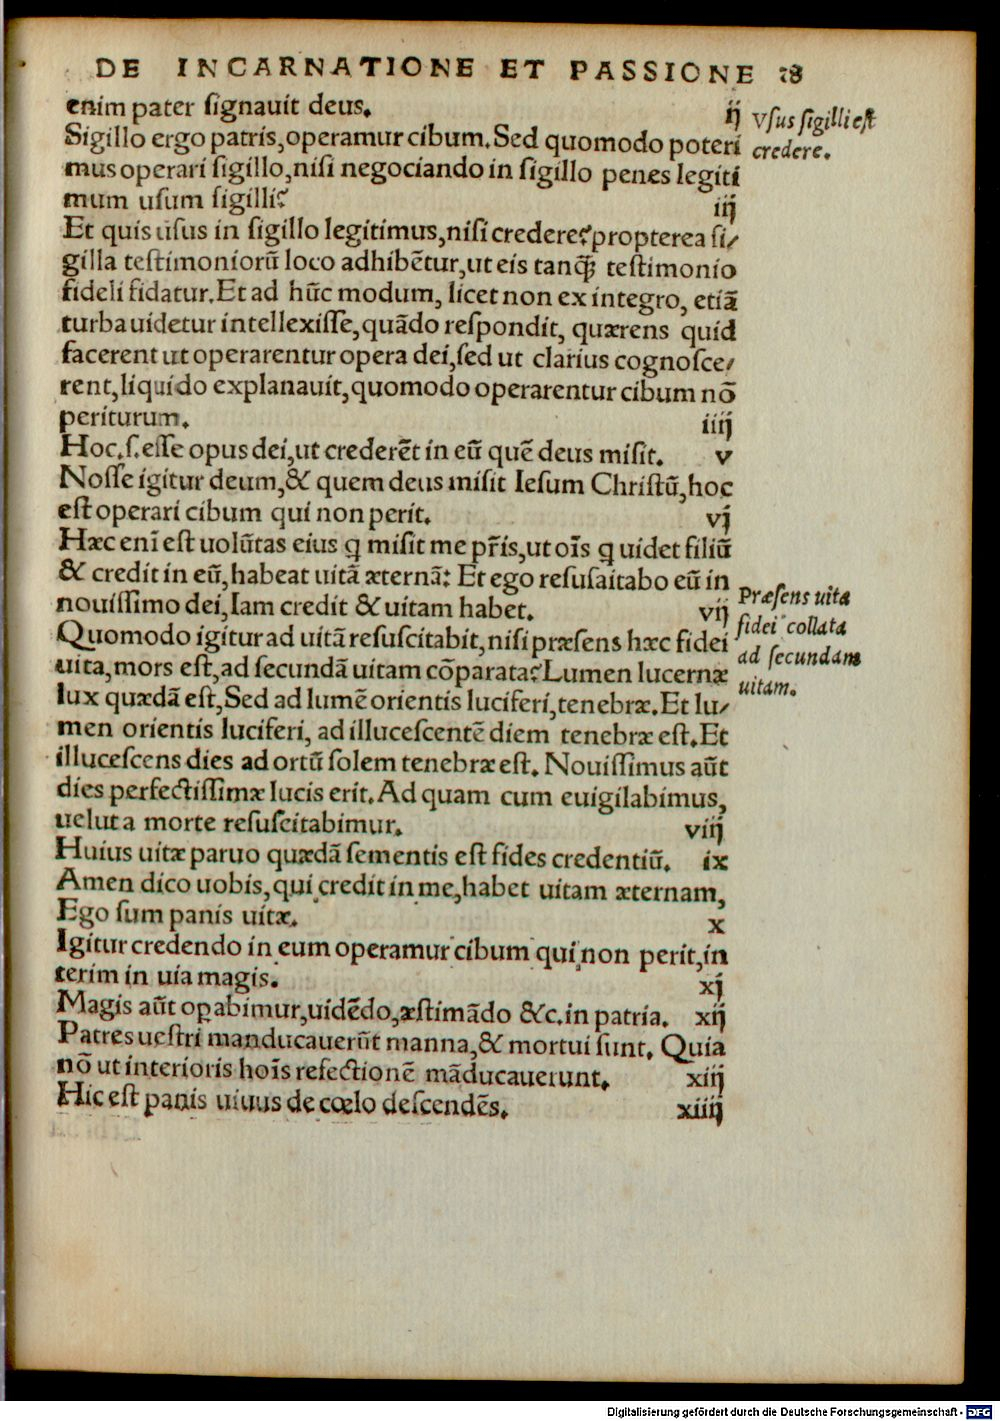 DE INCARNATIONE ET PASSIONE 28
enim pater signauit deus. ij
Sigillo ergo patris,operamur cibum.Sed quomodo poteri
mus operari sigillo,nisi negociando in sigillo penes legiti
mum usum sigilli? iij
Et quis usus in sigillo legitimus,nisi credere?propterea si/
gilla testimoniorū loco adhibētur,ut eis tanq̃ testimonio
fideli fidatur.Et ad hūc modum, licet non ex integro, etiā
turba uidetur intellexisse,quādo respondit, quærens quid
facerent ut operarentur opera dei,sed ut clarius cognosce/
rent,liquido explanauit,quomodo operarentur cibum nō
periturum. iiij
Hoc.s.esse opus dei,ut crederēt in eū quē deus misit. v
Nosse igitur deum,& quem deus misit Iesum Christū,hoc
est operari cibum qui non perit. vj
Hæc enī est uolūtas eius q misit me pr̄is,ut oīs q uidet filiū
& credit in eū,habeat uitā æternā: Et ego resusaitabo eū in
nouissimo dei,Iam credit & uitam habet. vij
Quomodo igitur ad uitā resuscitabit,nisi præsens hæc fidei
uita,mors est,ad secundā uitam cōparata?Lumen lucernæ
lux quædā est,Sed ad lumē orientis luciferi,tenebræ.Et lu/
men orientis luciferi, ad illucescentē diem tenebræ est.Et
illucescens dies ad ortū solem tenebræ est. Nouissimus aūt
dies perfectissimæ lucis erit.Ad quam cum euigilabimus,
uelut a morte resuscitabimur. viij
Huius uitæ paruo quædā sementis est fides credentiū. ix
Amen dico uobis,qui credit in me,habet uitam æternam,
Ego sum panis uitæ. x
Igitur credendo in eum operamur cibum qui non perit,in
terim in uia magis. xj
Magis aūt opabimur,uidēdo,æstimādo &c.in patria. xij
Patres uestri manducauerūt manna,& mortui sunt. Quia
nō ut interioris hoīs refectionē māducauerunt. xiij
Hic est panis uiuus de cœlo descendēs. xiiij
Vsus sigilli est
credere.
Præsens uita
fidei collata
ad secundam
uitam.
Digitalisierung gefördert durch die Deutsche Forschungsgemeinschaft - DFG